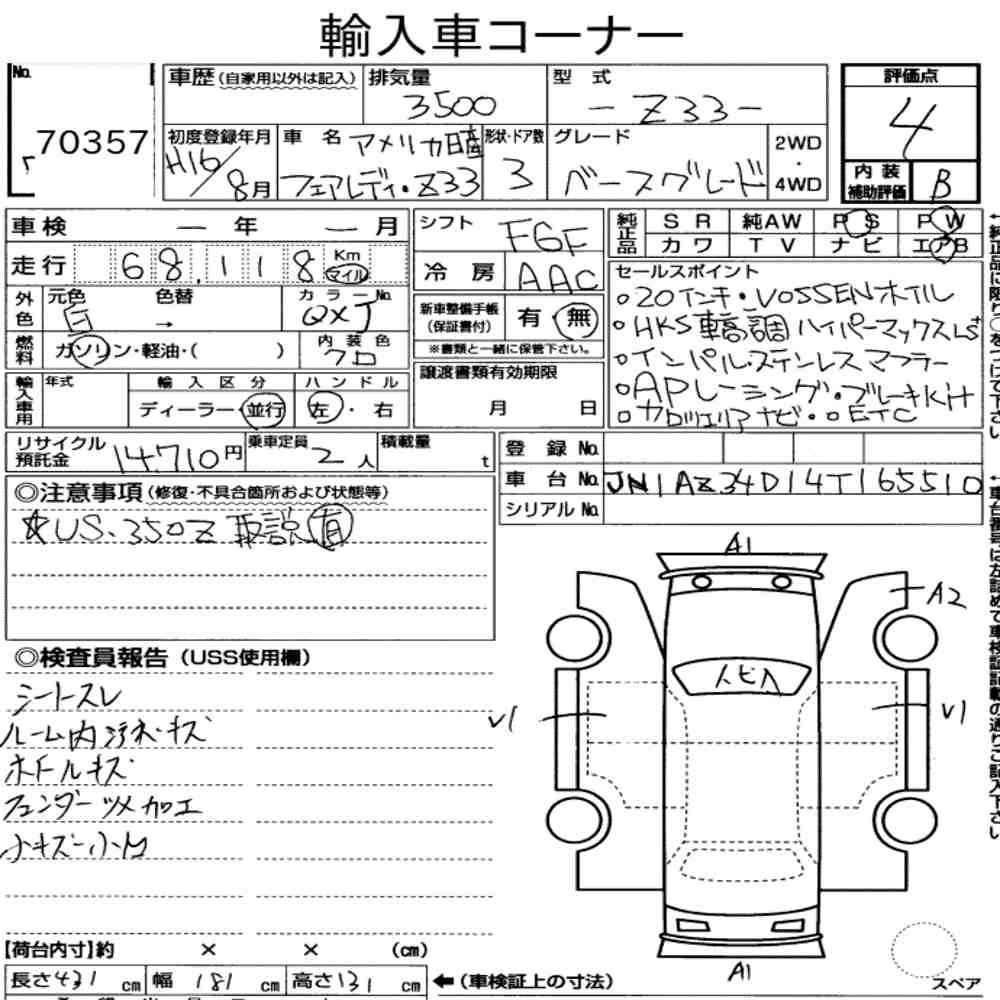 輸入車コーナー
No. 70357
車歴 (自家用以外は記入)
排気量 3500
型 式 -Z33-
評価点 4
初度登録年月 H16/8月
車 名 アメリカ日産 フェアレディ・Z33
形状・ドア数 3
グレード ベースグレード
2WD・4WD
内装補助評価 B
車検 ― 年 ― 月
シフト F6F
純正品 SR 純AW PS PW
カワ TV ナビ エアB
走行 68,118 Km マイル
冷 房 AAC
セールスポイント
○20インチ・VOSSENホイル
○HKS車高調 ハイパーマックスLS+
○インパル・ステンレスマフラー
○APレーシング・ブレーキKit
○カロッツェリアナビ・○ETC
外色 元色 白 色替 → カラーNo. QXJ
新車整備手帳(保証書付) 有 無
※書類と一緒に保管下さい。
燃料 ガソリン・軽油・( )
内装色 クロ
輸入車用 年式 輸入区分 ハンドル
ディーラー・並行 左・右
譲渡書類有効期限
月 日
リサイクル預託金 14,710円
乗車定員 2人
積載量 t
登 録 No.
車 台 No. JN1AZ34D14T165510
シリアルNo.
◎注意事項(修復・不具合箇所および状態等)
☆US・350Z 取説有
◎検査員報告(USS使用欄)
シートスレ
ルーム内汚れ・キズ
ホイールキズ
フェンダーツメ加工
小キズ・小凹
A1
A2
トビA
V1
V1
A1
【荷台内寸】約 × × (cm)
長さ431cm 幅181cm 高さ131cm
←(車検証上の寸法)
スペア
←純正品に限り○をつけて下さい
←車台番号は左詰めで車検証記載の通りご記入下さい